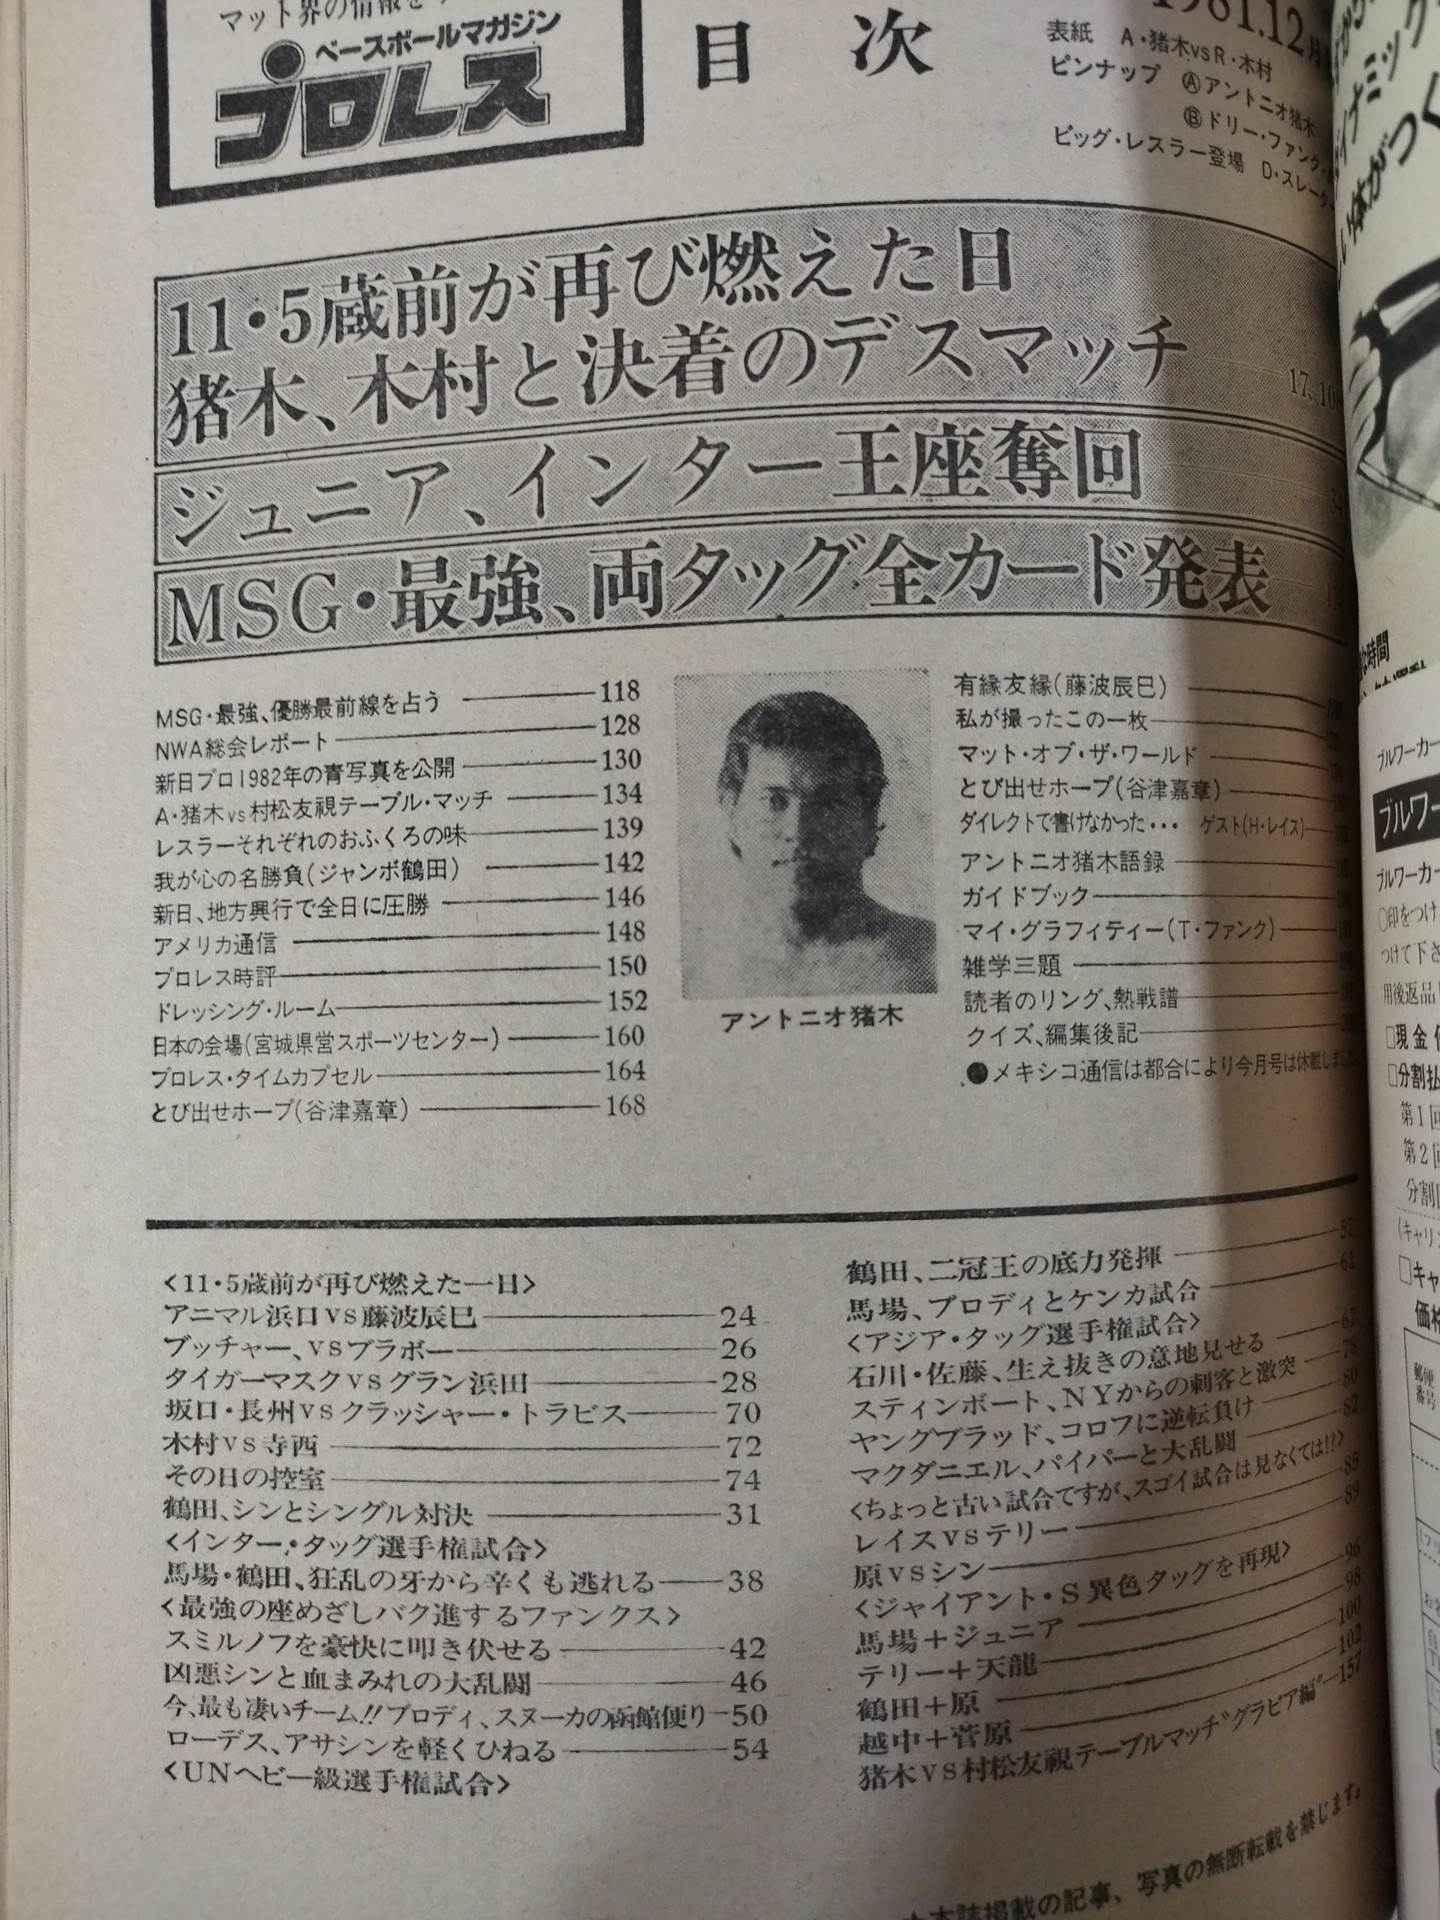 マット界の情報を
ベースボールマガジン
プロレス
目次
1981.12月
表紙 A・猪木vsR・木村
ピンナップ Ⓐアントニオ猪木
Ⓑドリー・ファンク・
ビッグ・レスラー登場 D・スレーター
11・5蔵前が再び燃えた日
猪木、木村と決着のデスマッチ 17、106
ジュニア、インター王座奪回 34
MSG・最強、両タッグ全カード発表
MSG・最強、優勝最前線を占う 118
NWA総会レポート 128
新日プロ1982年の青写真を公開 130
A・猪木vs村松友視テーブル・マッチ 134
レスラーそれぞれのおふくろの味 139
我が心の名勝負(ジャンボ鶴田) 142
新日、地方興行で全日に圧勝 146
アメリカ通信 148
プロレス時評 150
ドレッシング・ルーム 152
日本の会場(宮城県営スポーツセンター) 160
プロレス・タイムカプセル 164
とび出せホープ(谷津嘉章) 168
アントニオ猪木
有縁友縁(藤波辰巳)
私が撮ったこの一枚
マット・オブ・ザ・ワールド
とび出せホープ(谷津嘉章)
ダイレクトで書けなかった・・・ ゲスト(H・レイス)
アントニオ猪木語録
ガイドブック
マイ・グラフィティー(T・ファンク)
雑学三題
読者のリング、熱戦譜
クイズ、編集後記
●メキシコ通信は都合により今月号は休載しました
〈11・5蔵前が再び燃えた一日〉
アニマル浜口vs藤波辰巳 24
ブッチャー、vsブラボー 26
タイガーマスクvsグラン浜田 28
坂口・長州vsクラッシャー・トラビス 70
木村vs寺西 72
その日の控室 74
鶴田、シンとシングル対決 31
〈インター・タッグ選手権試合〉
馬場・鶴田、狂乱の牙から辛くも逃れる 38
〈最強の座めざしバク進するファンクス〉
スミルノフを豪快に叩き伏せる 42
凶悪シンと血まみれの大乱闘 46
今、最も凄いチーム!!ブロディ、スヌーカの函館便り 50
ローデス、アサシンを軽くひねる 54
〈UNヘビー級選手権試合〉
鶴田、二冠王の底力発揮 57
馬場、ブロディとケンカ試合 61
〈アジア・タッグ選手権試合〉
石川・佐藤、生え抜きの意地見せる 67
スティンボート、NYからの刺客と激突 78
ヤングブラッド、コロフに逆転負け 80
マクダニエル、パイパーと大乱闘 82
〈ちょっと古い試合ですが、スゴイ試合は見なくては!?〉
レイスvsテリー 85
原vsシン 89
〈ジャイアント・S異色タッグを再現〉
馬場＋ジュニア 96
テリー＋天龍 98
鶴田＋原 100
越中＋菅原 102
猪木vs村松友視テーブルマッチ"グラビア編" 157
★本誌掲載の記事、写真の無断転載を禁じます。
ブルワーカー
ブルワー
ブルワーカー
○印をつけ
つけて下さ
用後返品
□現金価
□分割払
第1回
第2回
分割
(キャリ
□キャ
価格
郵便番号